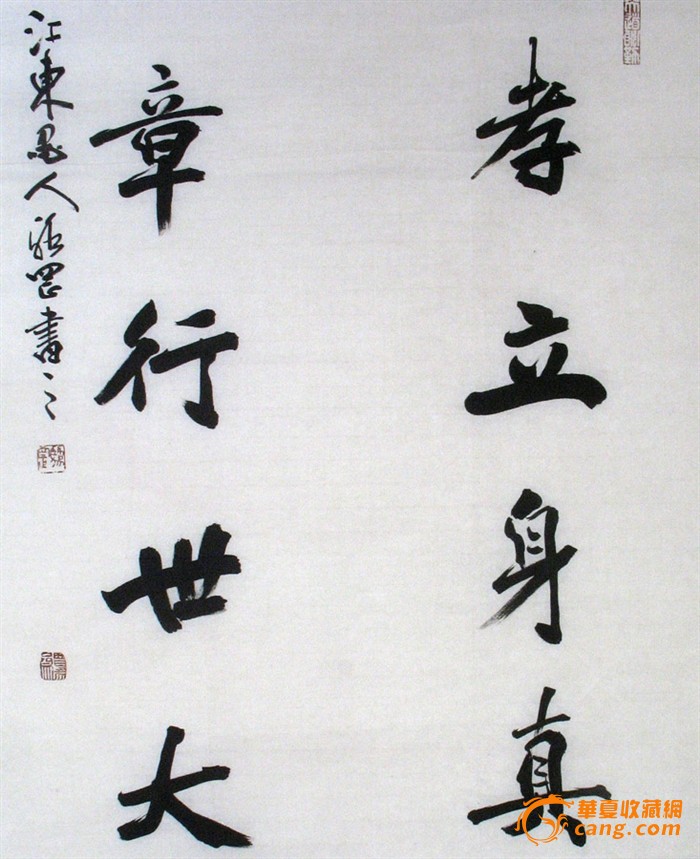 孝立身真
章行世大
江東愚人張罡書之
華夏收藏網
cang.com